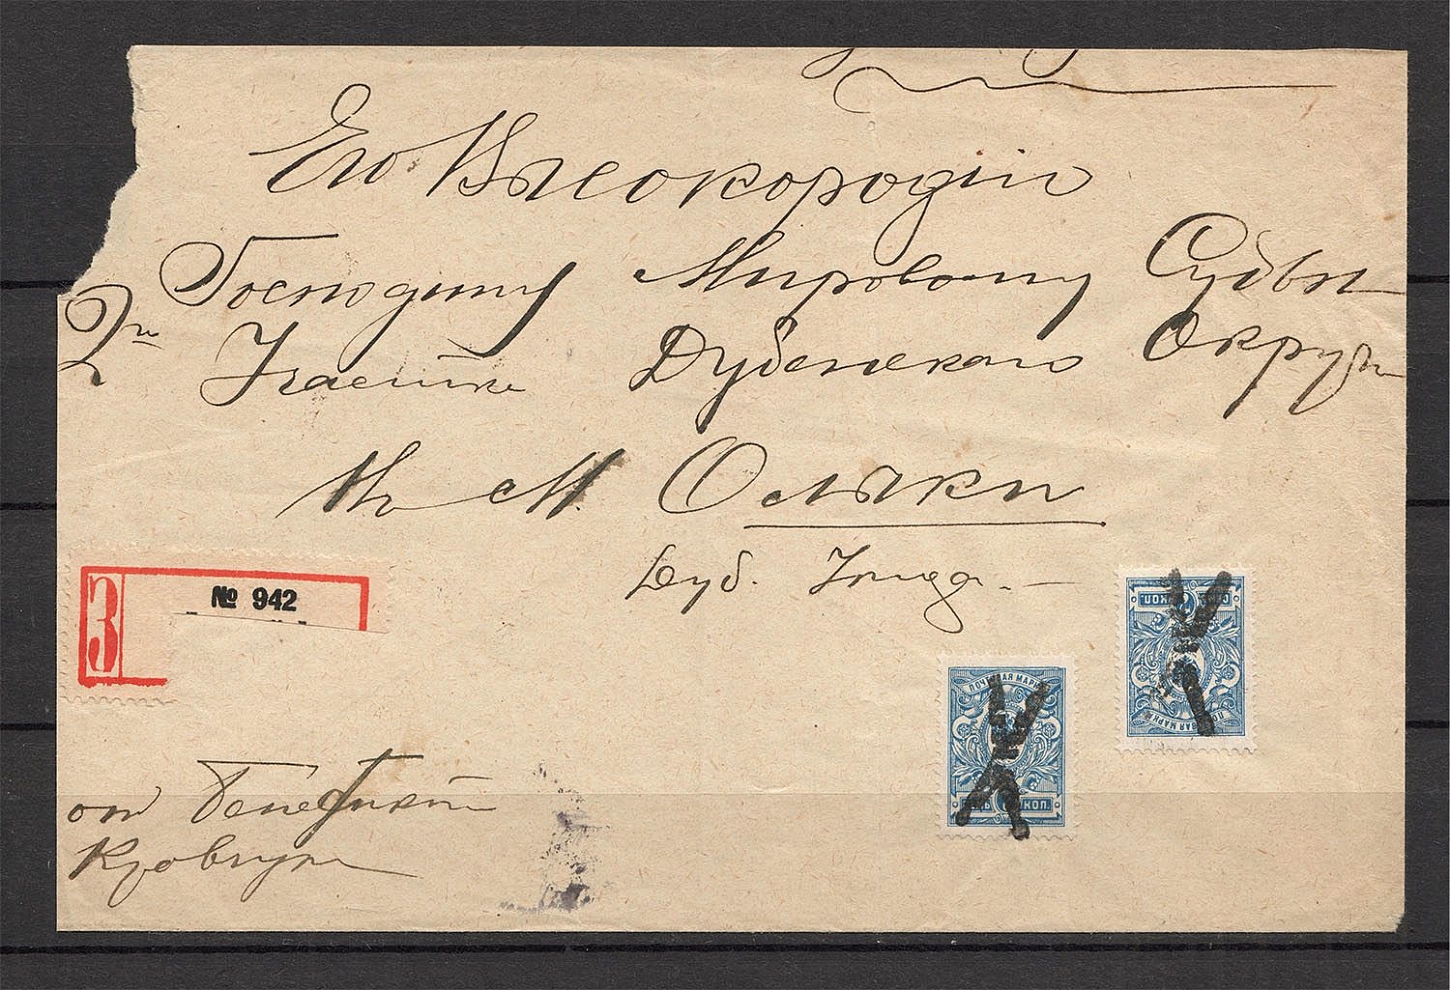 Его Высокородію
Господину Мировому Судьѣ
2го Участка Дубенскаго Округа
въ М. Олыки
Дуб. Уѣзд.
З
№ 942
ПОЧТОВАЯ МАРКА
СЕМЬ КОП.
ПОЧТОВАЯ МАРКА
СЕМЬ КОП.
от Бенедикта